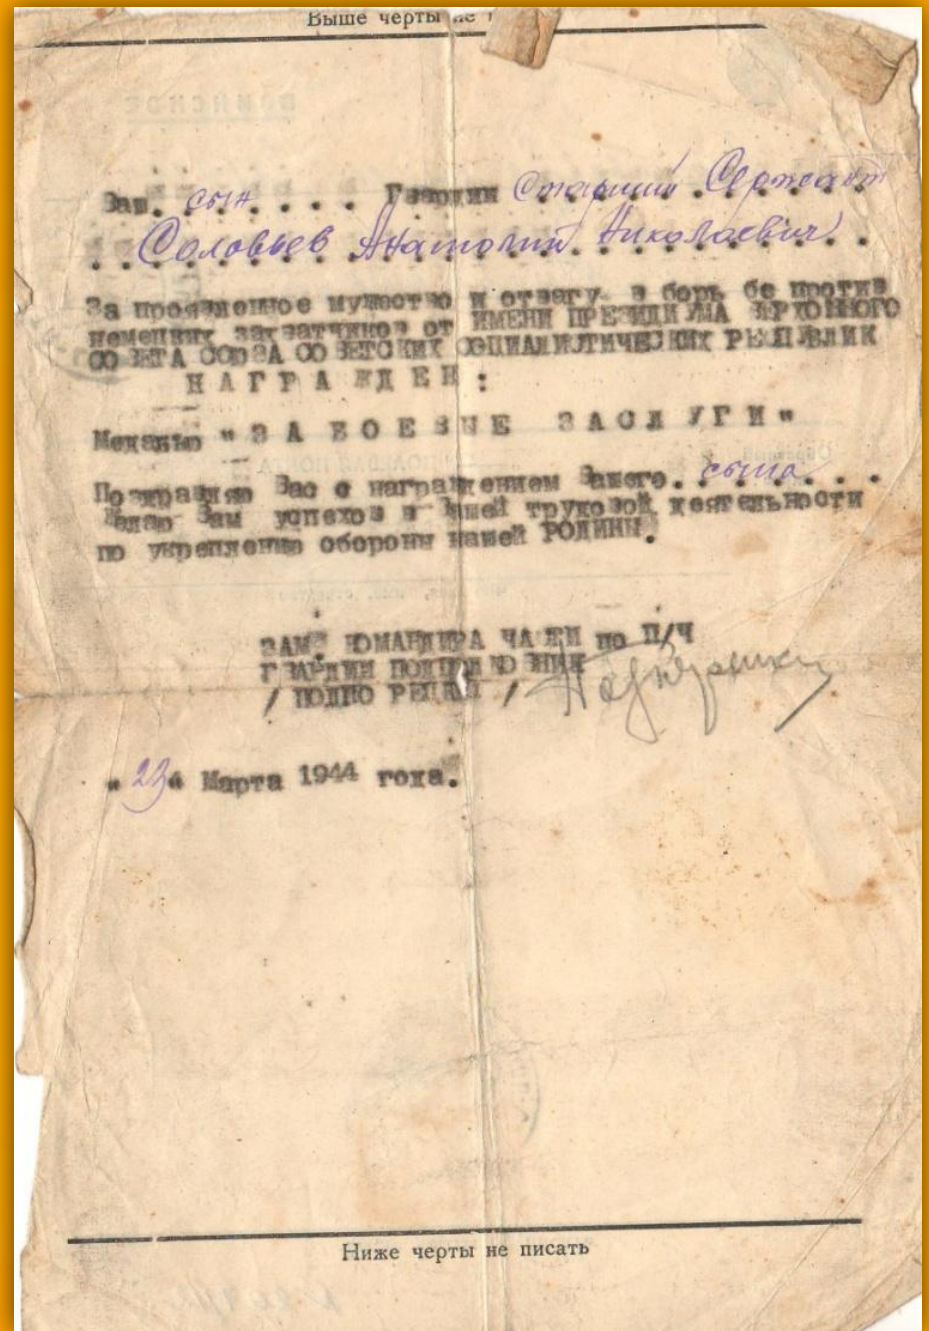 Выше черты не
Ваш. сын. . . . Гвардии Старший Сержант
Соловьев Анатолий Николаевич
За проявленное мужество и отвагу в борь бе против
немецких захватчиков от ИМЕНИ ПРЕЗИДИУМА ВЕРХОВНОГО
СОВЕТА СОЮЗА СОВЕТСКИХ СОЦИАЛИСТИЧЕСКИХ РЕСПУБЛИК
НАГРАЖДЕН:
Медалью "ЗА БОЕВЫЕ ЗАСЛУГИ"
Поздравляю Вас с награждением Вашего. сына
Желаю Вам успехов в Вашей трудовой деятельности
по укреплению обороны нашей РОДИНЫ.
ЗАМ. КОМАНДИРА ЧАСТИ по П/Ч
ГВАРДИИ ПОДПОЛКОВНИК
/ /
"23" Марта 1944 года.
Ниже черты не писать